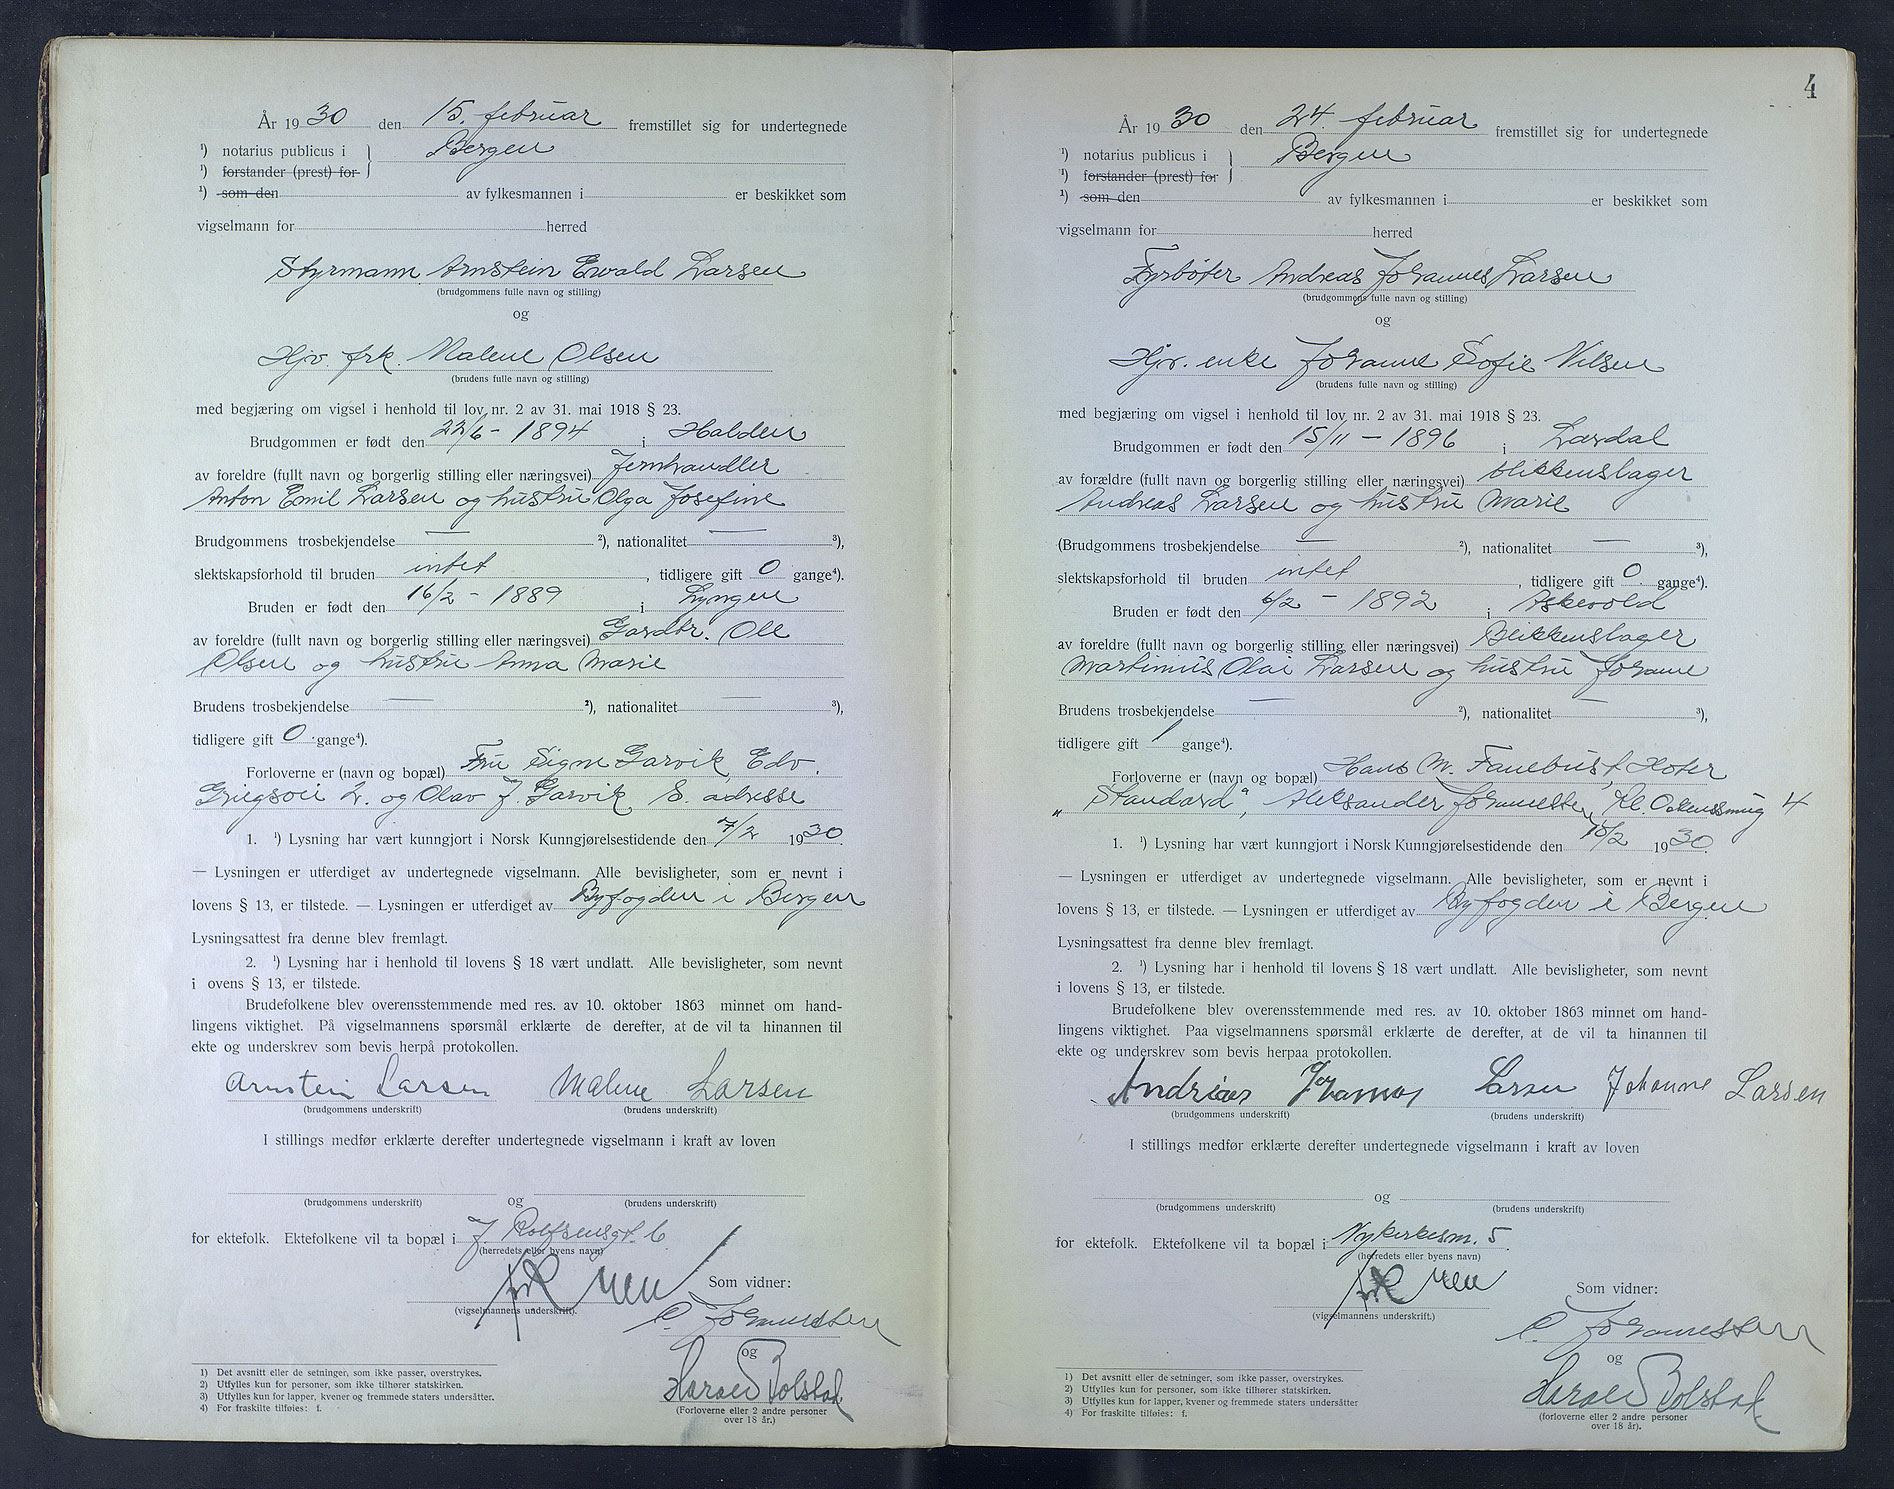 År 1930 den 15. februar fremstillet sig for undertegnede
¹) notarius publicus i Bergen
¹) forstander (prest) for
¹) som den av fylkesmannen i er beskikket som
vigselmann for herred
Styrmann Arnstein Ewald Larsen
(brudgommens fulle navn og stilling)
og
Hjv. frk. Malene Olsen
(brudens fulle navn og stilling)
med begjæring om vigsel i henhold til lov nr. 2 av 31. mai 1918 § 23.
Brudgommen er født den 22/6 - 1894 i Halden
av foreldre (fullt navn og borgerlig stilling eller næringsvei) Jernhandler
Anton Emil Larsen og hustru Olga Josefine
Brudgommens trosbekjendelse — ²), nationalitet — ³),
slektskapsforhold til bruden intet, tidligere gift 0 gange⁴).
Bruden er født den 16/2 - 1889 i Lyngen
av foreldre (fullt navn og borgerlig stilling eller næringsvei) Gardbr. Ole
Olsen og hustru Anna Marie
Brudens trosbekjendelse — ²), nationalitet — ³),
tidligere gift 0 gange⁴).
Forloverne er (navn og bopæl) Fru Signe Garvik, Edv.
Griegsvei 2. og Olav J. Garvik, S. adresse
1. ¹) Lysning har vært kunngjort i Norsk Kunngjørelsestidende den 7/2 1930.
— Lysningen er utferdiget av undertegnede vigselmann. Alle bevisligheter, som er nevnt i
lovens § 13, er tilstede. — Lysningen er utferdiget av Byfogden i Bergen
Lysningsattest fra denne blev fremlagt.
2. ¹) Lysning har i henhold til lovens § 18 vært undlatt. Alle bevisligheter, som nevnt
i ovens § 13, er tilstede.
Brudefolkene blev overensstemmende med res. av 10. oktober 1863 minnet om hand-
lingens viktighet. På vigselmannens spørsmål erklærte de derefter, at de vil ta hinannen til
ekte og underskrev som bevis herpå protokollen.
Arnstein Larsen Malene Larsen
(brudgommens underskrift) (brudens underskrift)
I stillings medfør erklærte derefter undertegnede vigselmann i kraft av loven
og
(brudgommens underskrift) (brudens underskrift)
for ektefolk. Ektefolkene vil ta bopæl i J. Rolfsensgt. 6
(herredets eller byens navn)
Som vidner:
(vigselmannens underskrift).
C. Johannessen
og
Harald Bolstad
(Forloverne eller 2 andre personer
over 18 år.)
1) Det avsnitt eller de setninger, som ikke passer, overstrykes.
2) Utfylles kun for personer, som ikke tilhører statskirken.
3) Utfylles kun for lapper, kvener og fremmede staters undersåtter.
4) For fraskilte tilføies: f.
4
År 1930 den 24. februar fremstillet sig for undertegnede
¹) notarius publicus i Bergen
¹) forstander (prest) for
¹) som den av fylkesmannen i er beskikket som
vigselmann for herred
Fyrbøter Andreas Johannes Larsen
(brudgommens fulle navn og stilling)
og
Hjv. enke Johanne Sofie Nilsen
(brudens fulle navn og stilling)
med begjæring om vigsel i henhold til lov nr. 2 av 31. mai 1918 § 23.
Brudgommen er født den 15/11 - 1896 i Lærdal
av forældre (fullt navn og borgerlig stilling eller næringsvei) blikkenslager
Andreas Larsen og hustru Marie
(Brudgommens trosbekjendelse — ²), nationalitet — ³),
slektskapsforhold til bruden intet, tidligere gift 0 gange⁴).
Bruden er født den 6/2 - 1892 i Askevold
av foreldre (fullt navn og borgerlig stilling eller næringsvei) Blikkenslager
Martinius Olai Larsen og hustru Johanne
Brudens trosbekjendelse — ²), nationalitet — ³),
tidligere gift 1 gange⁴).
Forloverne er (navn og bopæl) Hans M. Fanebust, Hotel
"Standard", Aleksander Johannessen, Kl. Oekenssmug 4
1. ¹) Lysning har vært kunngjort i Norsk Kunngjørelsestidende den 15/2 1930.
— Lysningen er utferdiget av undertegnede vigselmann. Alle bevisligheter, som er nevnt i
lovens § 13, er tilstede. — Lysningen er utferdiget av Byfogden i Bergen
Lysningsattest fra denne blev fremlagt.
2. ¹) Lysning har i henhold til lovens § 18 vært undlatt. Alle bevisligheter, som nevnt
i lovens § 13, er tilstede.
Brudefolkene blev overensstemmende med res. av 10. oktober 1863 minnet om hand-
lingens viktighet. Paa vigselmannens spørsmål erklærte de derefter, at de vil ta hinannen til
ekte og underskrev som bevis herpaa protokollen.
Andreas Johannes Larsen Johanne Larsen
(brudgommens underskrift) (brudens underskrift)
I stillings medfør erklærte derefter undertegnede vigselmann i kraft av loven
og
(brudgommens underskrift) (brudens underskrift)
for ektefolk. Ektefolkene vil ta bopæl i Nykirkesm. 5
(herredets eller byens navn)
Som vidner:
(vigselmannens underskrift.)
C. Johannessen
og
Harald Bolstad
(forloverne eller 2 andre personer
over 18 år).
1) Det avsnitt eller de setninger, som ikke passer, overstrykes.
2) Utfylles kun for personer, som ikke tilhører statskirken.
3) Utfylles kun for lapper, kvener og fremmede staters undersåtter
4) For fraskilte tilføies: f.